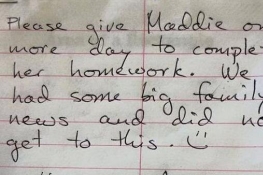 Please give Maddie on
more day to comple
her homework. We
had some big family
news and did no
get to this. :)